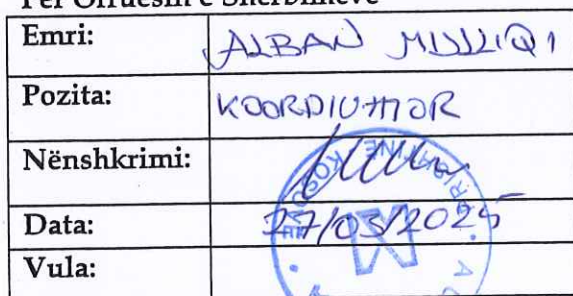 Për Ofruesin e Shërbimeve
Emri: ALBAN
Pozita: KOORDINATOR
Nënshkrimi:
Data: 27/03/2025
Vula: